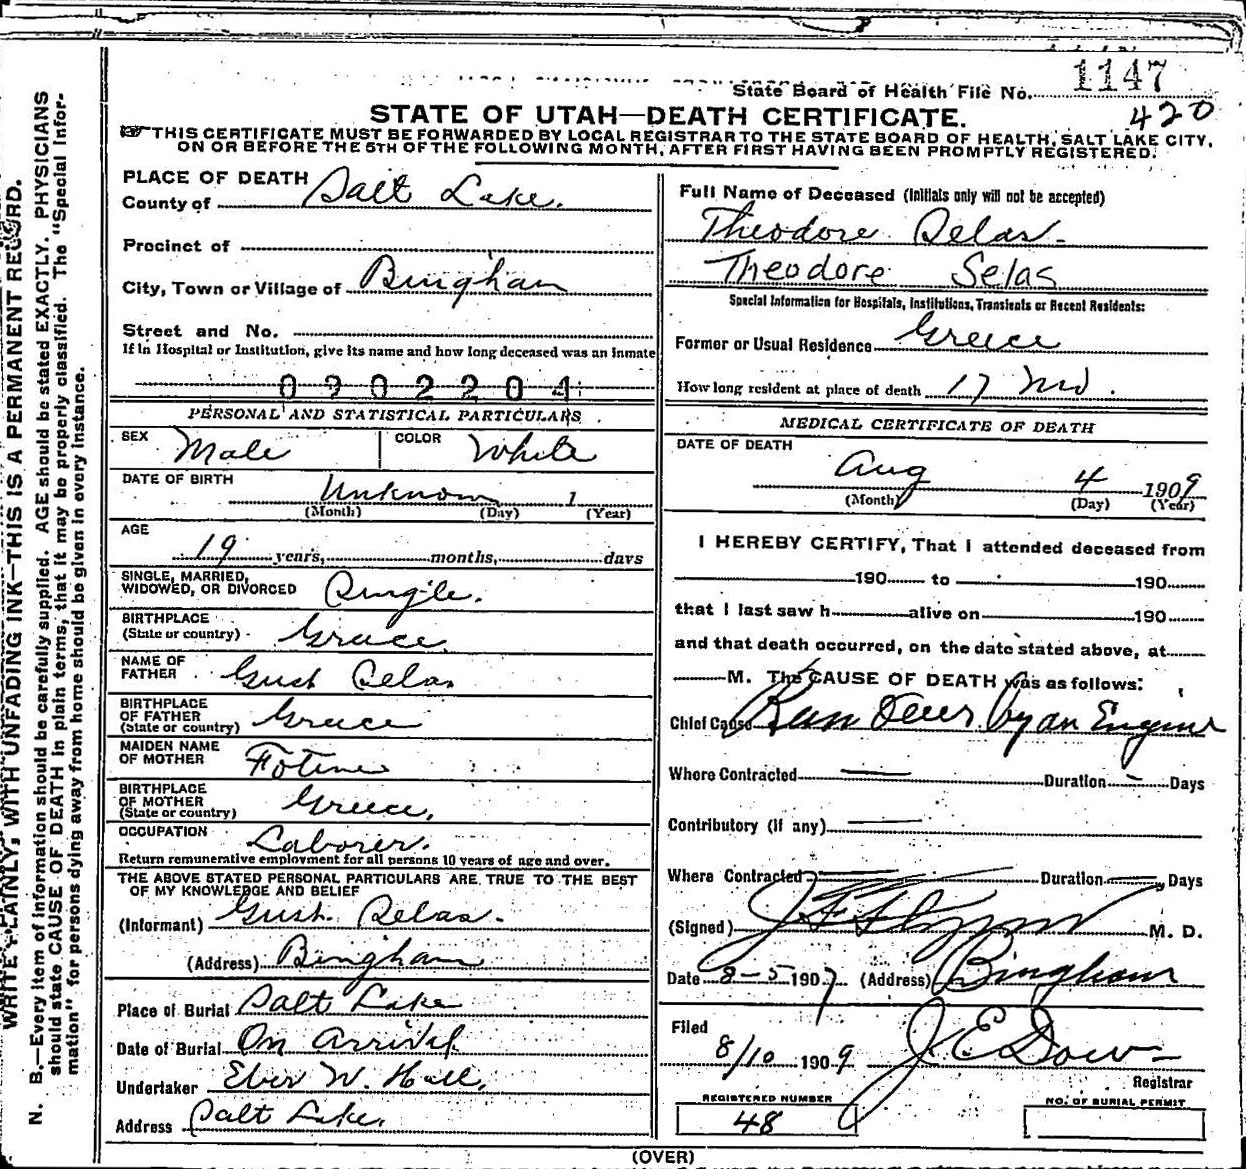 State Board of Health File No. 1147
420
STATE OF UTAH—DEATH CERTIFICATE.
THIS CERTIFICATE MUST BE FORWARDED BY LOCAL REGISTRAR TO THE STATE BOARD OF HEALTH, SALT LAKE CITY,
ON OR BEFORE THE 5TH OF THE FOLLOWING MONTH, AFTER FIRST HAVING BEEN PROMPTLY REGISTERED.
WRITE PLAINLY, WITH UNFADING INK—THIS IS A PERMANENT RECORD.
N. B.—Every item of information should be carefully supplied. AGE should be stated EXACTLY. PHYSICIANS
should state CAUSE OF DEATH in plain terms, that it may be properly classified. The "Special Infor-
mation" for persons dying away from home should be given in every instance.
PLACE OF DEATH
County of Salt Lake.
Precinct of
City, Town or Village of Bingham
Street and No.
If in Hospital or Institution, give its name and how long deceased was an Inmate
0902204
PERSONAL AND STATISTICAL PARTICULARS
SEX Male COLOR White
DATE OF BIRTH
Unknown 1
(Month) (Day) (Year)
AGE
19 years, months, days
SINGLE, MARRIED,
WIDOWED, OR DIVORCED Single.
BIRTHPLACE
(State or country) Greece.
NAME OF
FATHER Gust Selas
BIRTHPLACE
OF FATHER
(State or country) Greece
MAIDEN NAME
OF MOTHER Fotine
BIRTHPLACE
OF MOTHER
(State or country) Greece.
OCCUPATION Laborer.
Return remunerative employment for all persons 10 years of age and over.
THE ABOVE STATED PERSONAL PARTICULARS ARE TRUE TO THE BEST
OF MY KNOWLEDGE AND BELIEF
(Informant) Gust. Selas.
(Address) Bingham
Place of Burial Salt Lake
Date of Burial On Arrival
Undertaker Eber W. Hall.
Address Salt Lake.
Full Name of Deceased (Initials only will not be accepted)
Theodore Selas
Theodore Selas
Special Information for Hospitals, Institutions, Transients or Recent Residents:
Former or Usual Residence Greece
How long resident at place of death 17 Mo.
MEDICAL CERTIFICATE OF DEATH
DATE OF DEATH
Aug 4 1909
(Month) (Day) (Year)
I HEREBY CERTIFY, That I attended deceased from
190 to 190
that I last saw h alive on 190
and that death occurred, on the date stated above, at
M. The CAUSE OF DEATH was as follows:
Chief Cause Run Over by an Engine
Where Contracted Duration Days
Contributory (if any)
Where Contracted Duration Days
(Signed) J F Flynn M. D.
Date 8-5 1907 (Address) Bingham
Filed
8/10 1909 J. E. Dow
Registrar
REGISTERED NUMBER
48
NO. OF BURIAL PERMIT
(OVER)